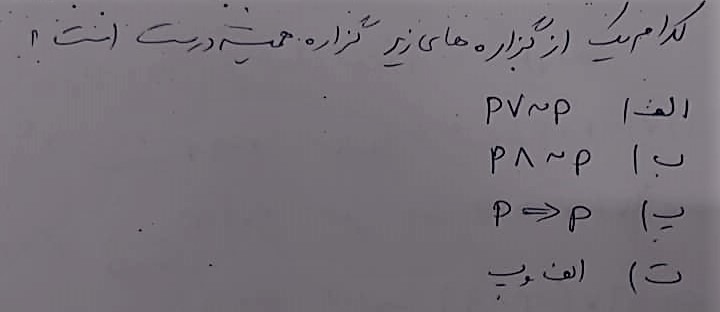 کدام یک از گزاره های زیر گزاره همیشه درست است؟
الف) p∨~p
ب) p∧~p
پ) p⇒p
ت) الف و پ